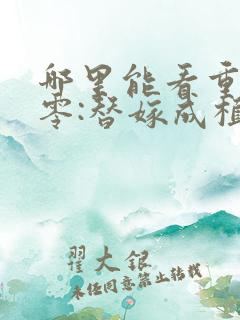 哪里能看重
零:替嫁成植
翟大银
未经同意禁止转载